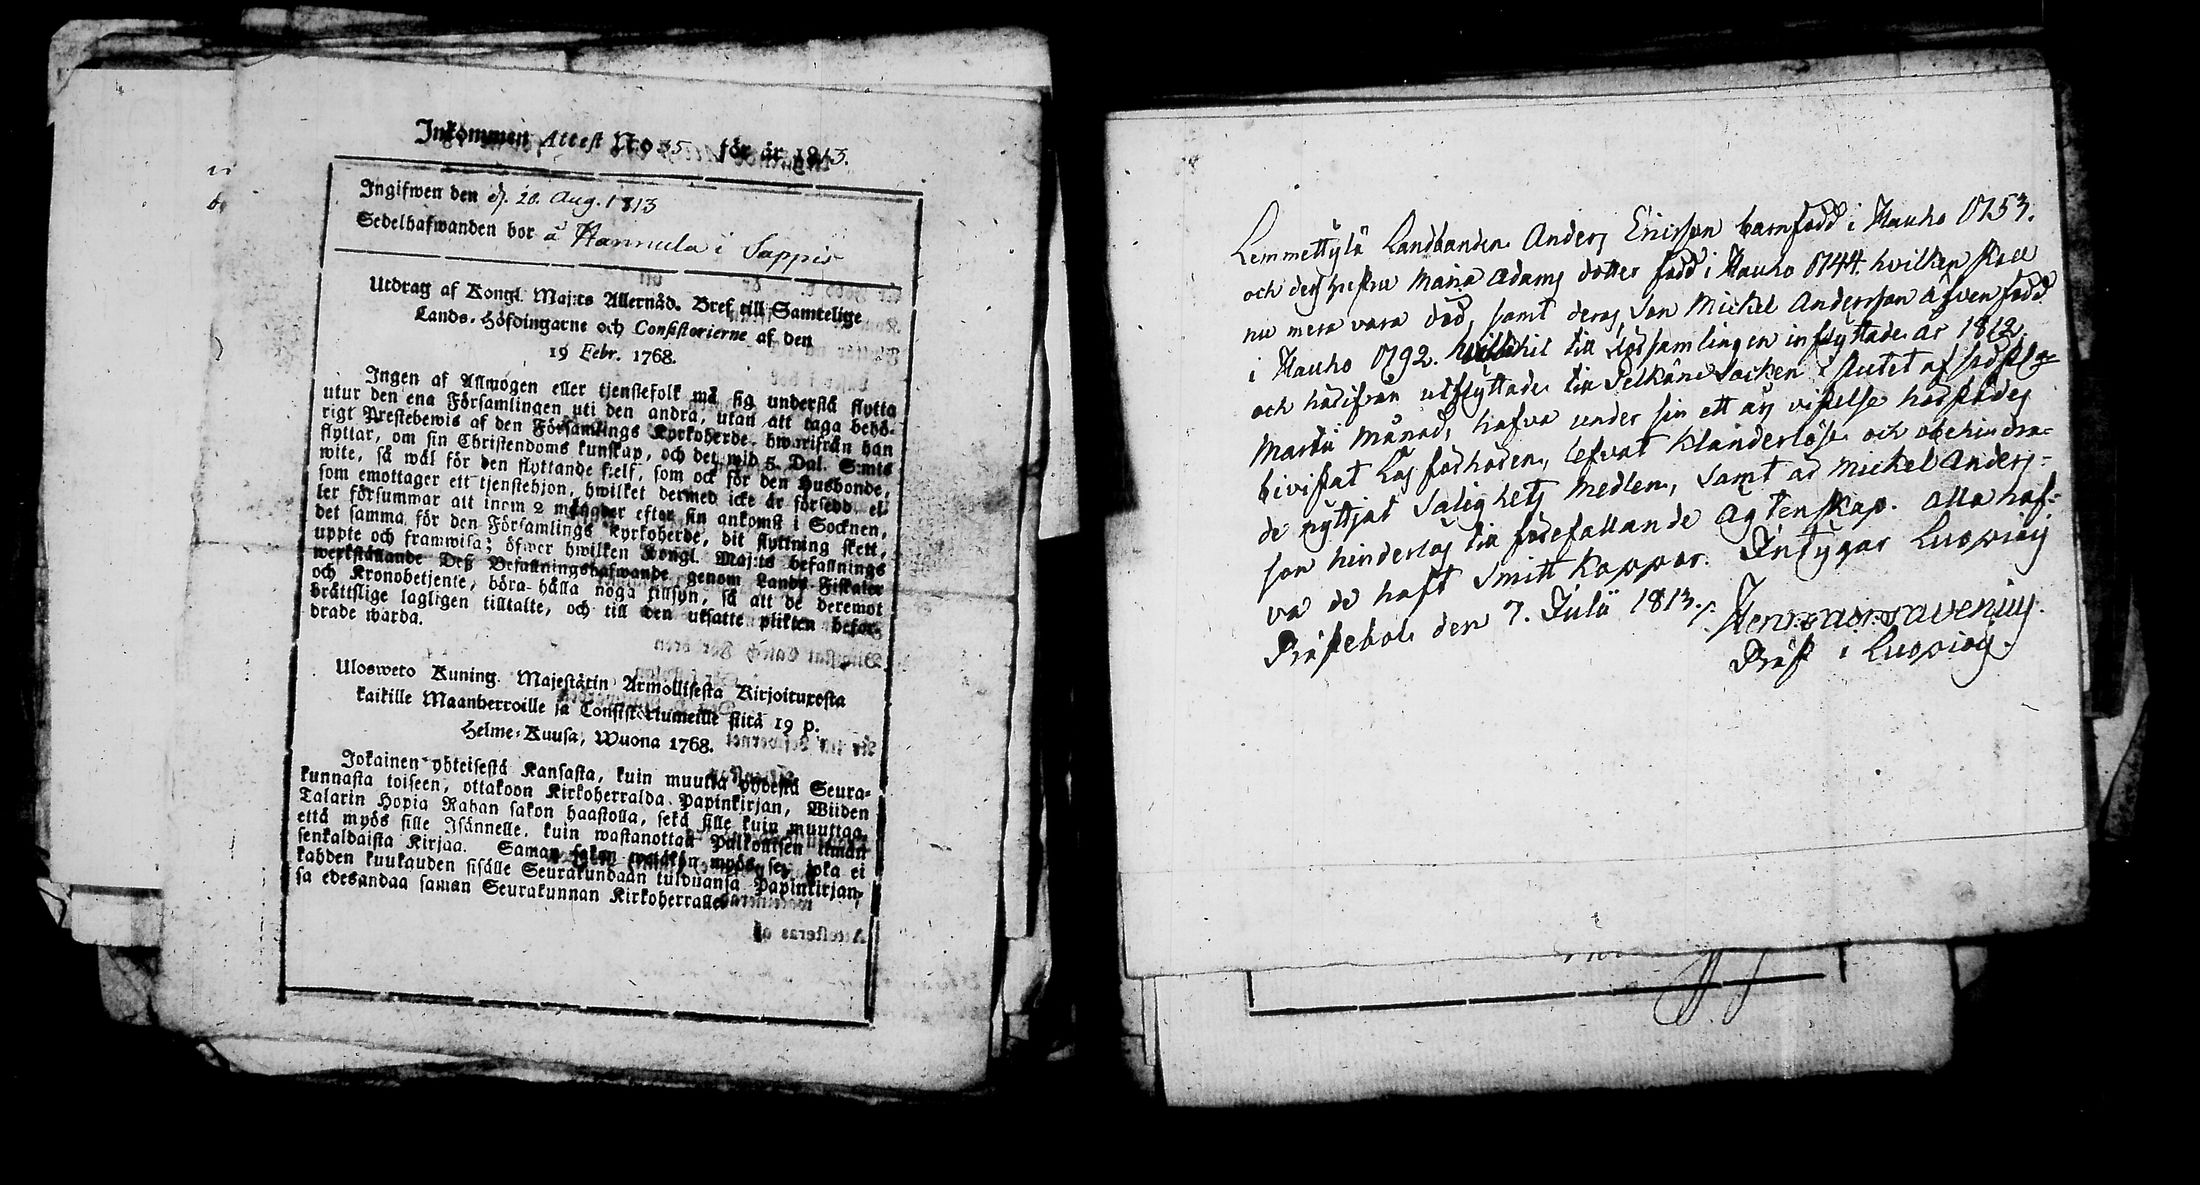 Inkommen Attest No 35 för år 1813.
Ingifwen den d. 20. Aug. 1813
Sedelhafwanden bor å Hannula i Sappis
Utdrag af Kongl. Maj:ts Allernåd. Bref till Samtelige
Lands-Höfdingarne och Consistorierne af den
19 Febr. 1768.
Ingen af Allmogen eller tjenstefolk må sig understå flytta
utur den ena Församlingen uti den andra, utan att taga behö-
rigt Prestebewis af den Församlings Kyrkoherde, hwarifrån han
flyttar, om sin Christendoms kunskap, och det wid 5. Dal. S:mts
wite, så wäl för den flyttande sielf, som ock för den Husbonde,
som emottager ett tjenstehjon, hwilket dermed icke är försedd, el-
ler försummar att inom 2 månader efter sin ankomst i Socknen,
det samma för den Församlings Kyrkoherde, dit flyttning skett,
uppte och framwisa; öfwer hwilken Kongl. Maj:ts befallnings
werkställande Deß Befallningshafwande genom Lands-Fiskaler
och Kronobetjente, böra hålla noga tillsyn, så att de deremot
bråttslige lagligen tilltalte, och till den utsatte plikten befor-
drade warda.
Ulosweto Kuning. Majestätin Armollisesta Kirjoituxesta
kaikille Maanherroille ja Consistoriumeille siitä 19 p.
Helme-Kuusa, Wuona 1768.
Jokainen yhteisestä Kansasta, kuin muutta yhdestä Seura-
kunnasta toiseen, ottakoon Kirkoherralda Papinkirjan, Wiiden
Talarin Hopia Rahan sakon haastolla, sekä sille kuin muuttaa,
että myös sille Isännelle, kuin wastanottaa Palkollisen ilman
senkaldaista Kirjaa. Saman sakon wetäkön myös se, joka ei
kahden kuukauden sisälle Seurakundaan tulduansa Papinkirjan-
sa edesandaa saman Seurakunnan Kirkoherralle.
Attesteras af
Lemmettylä Landbonden Anders Ericsson barnfödd i Hauho 1753.
och des hustru Maria Adams dotter född i Hauho 1744. hvilken skall
nu mera vara död, samt deras Son Mickel Andersson äfven född
i Hauho 1792. hit till församlingen inflyttade år 1812,
och härifrån utflyttade till Pelkäne Socken i slutet af
Martii Månad, hafva under sin ett års vistelse härstädes
bevistat Läsförhören, lefvat klanderlöst och obehindra-
de nyttjat Salighets Medlen, samt är Mickel Anders-
son hinderlös till förefallande Ägtenskap. Alla haf-
va de haft Smittkoppor. Intygar Luopiois
Prästebol den 7. Julii 1813.
Präst i Luopiois.